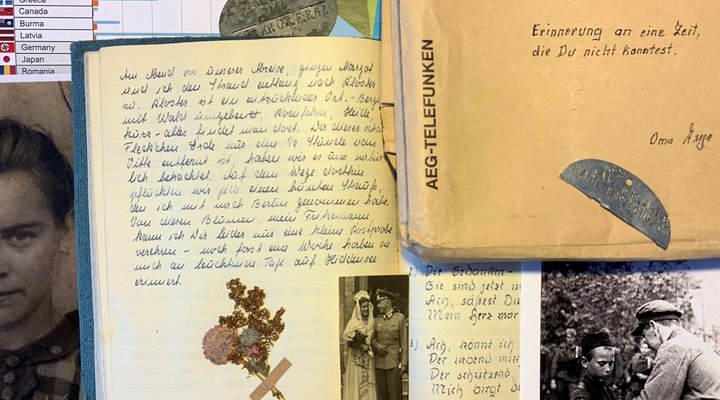 Greece
Canada
Burma
Latvia
Germany
Japan
Romania
Am Abend vor unserer Abreise, gingen Margot
und ich den Strand entlang nach Kloster
zu. Kloster ist ein entzückender Ort. - Berge
mit Wald umgeben, Kornfelder, Heide,
kurz - alles findet man dort. Da dieses schöne
Fleckchen Erde nur eine 1/2 Stunde von
Vitte entfernt ist, haben wir es uns natür-
lich betrachtet. Auf dem Wege dorthin
pflückten wir jede einen bunten Strauß,
den ich mit nach Berlin genommen habe.
Von diesen Blumen, mein
kann ich Dir leider nur eine kleine Kostprobe
verehren - noch fast eine Woche haben sie
mich an leuchtende Tage auf Hiddensee
erinnert.
AEG-TELEFUNKEN
Erinnerung an eine Zeit,
die Du nicht kanntest.
Oma Inge
2) Die Gedanken -
Sie sind jetzt
Ach, säßest Du
Mein Herz war
3.) Ach, könnt ich
Der
Der schützend,
Mich birgt